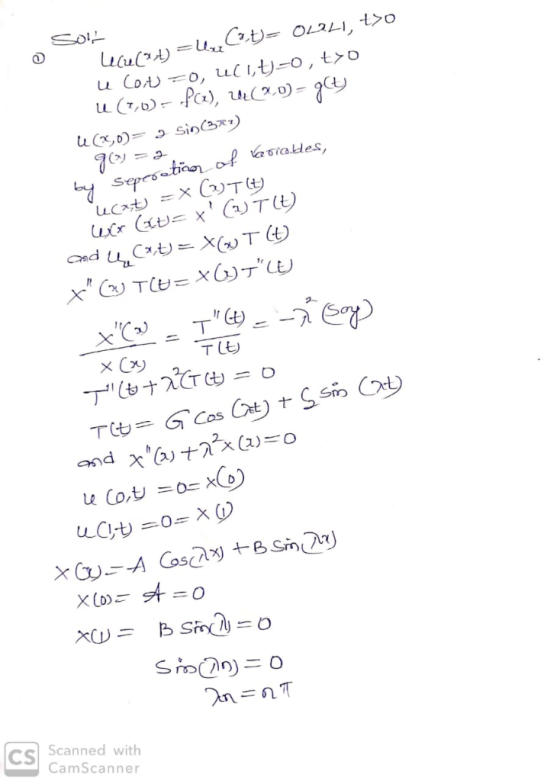 ① Sol:-
u_tt(x,t) = u_xx(x,t) = 0<x<1, t>0
u(0,t) = 0, u(1,t) = 0, t>0
u(x,0) = f(x), u_t(x,0) = g(t)
u(x,0) = 2 sin(3πx)
g(x) = 2
by seperation of variables,
u(x,t) = X(x)T(t)
u_xx(x,t) = X'(x)T(t)
and u_tt(x,t) = X(x)T(t)
X"(x)T(t) = X(x)T"(t)
X"(x)/X(x) = T"(t)/T(t) = -λ² (say)
T"(t) + λ²T(t) = 0
T(t) = C₁ cos(λt) + C₂ sin(λt)
and X"(x) + λ²X(x) = 0
u(0,t) = 0 = X(0)
u(1,t) = 0 = X(1)
X(x) = A cos(λx) + B sin(λx)
X(0) = A = 0
X(1) = B sin(λ) = 0
Sin(λn) = 0
λn = nπ
CS Scanned with
CamScanner